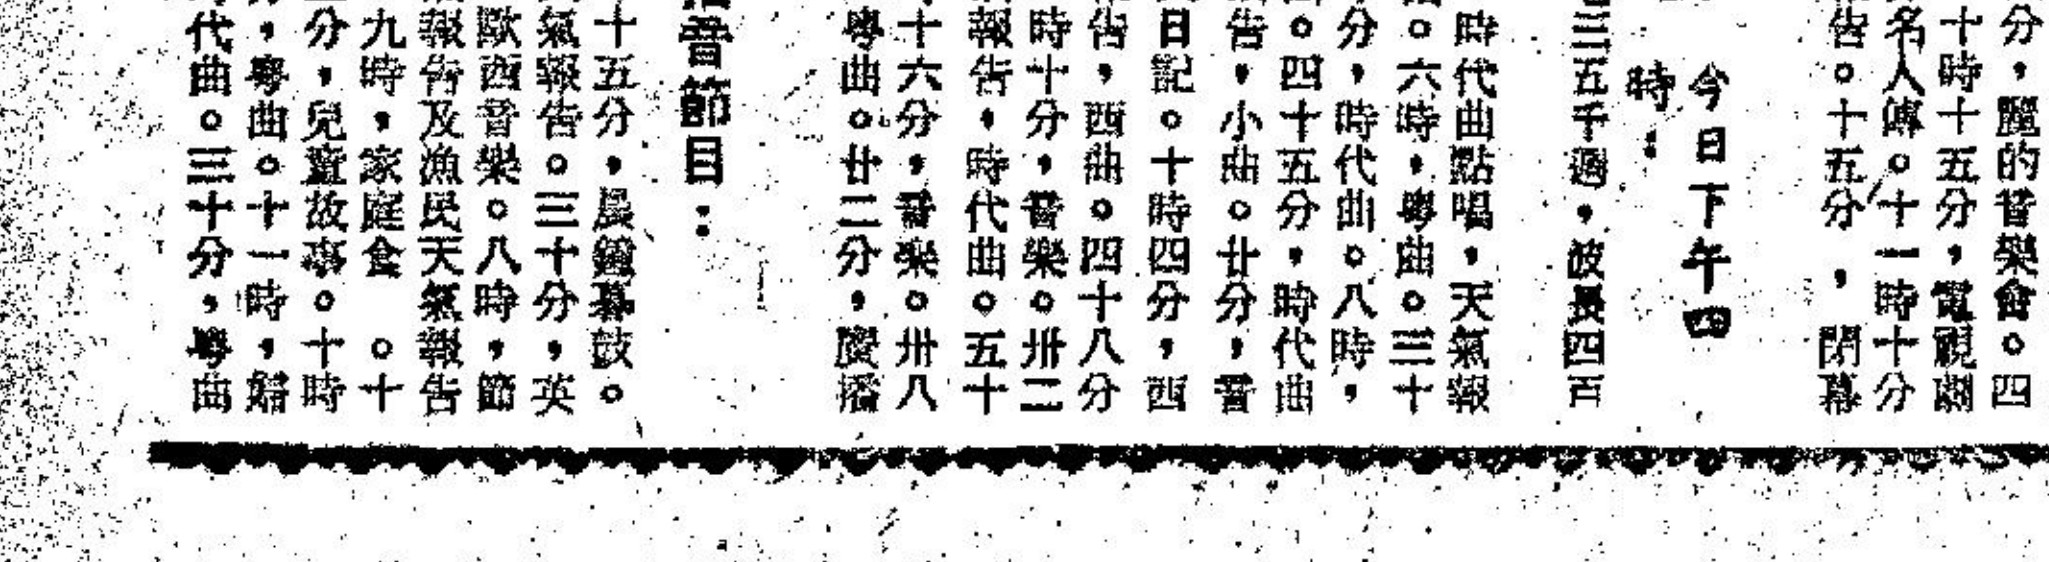 分，麗的音樂會。四
十時十五分，電視劇
名人傳。十一時十分
告。十五分　，閉幕
今日下午四
時：
三五千週，波長四百
時代曲點唱，天氣報
。六時，粵曲。三十
分，時代曲。八時，
。四十五分，時代曲
告，小曲。廿分，音
日記。十時四分，西
告，西曲。四十八分
時十分，音樂。卅二
報告，時代曲。五十
十六分，音樂。卅八
粵曲。廿二分，廣播
音節目：
十五分，晨鐘暮鼓。
氣報告。三十分，英
歐西音樂。八時，節
報告及漁民天氣報告
九時，家庭食　。十
分，兒童故事。十時
，粵曲。十一時，
代曲。三十分，粵曲